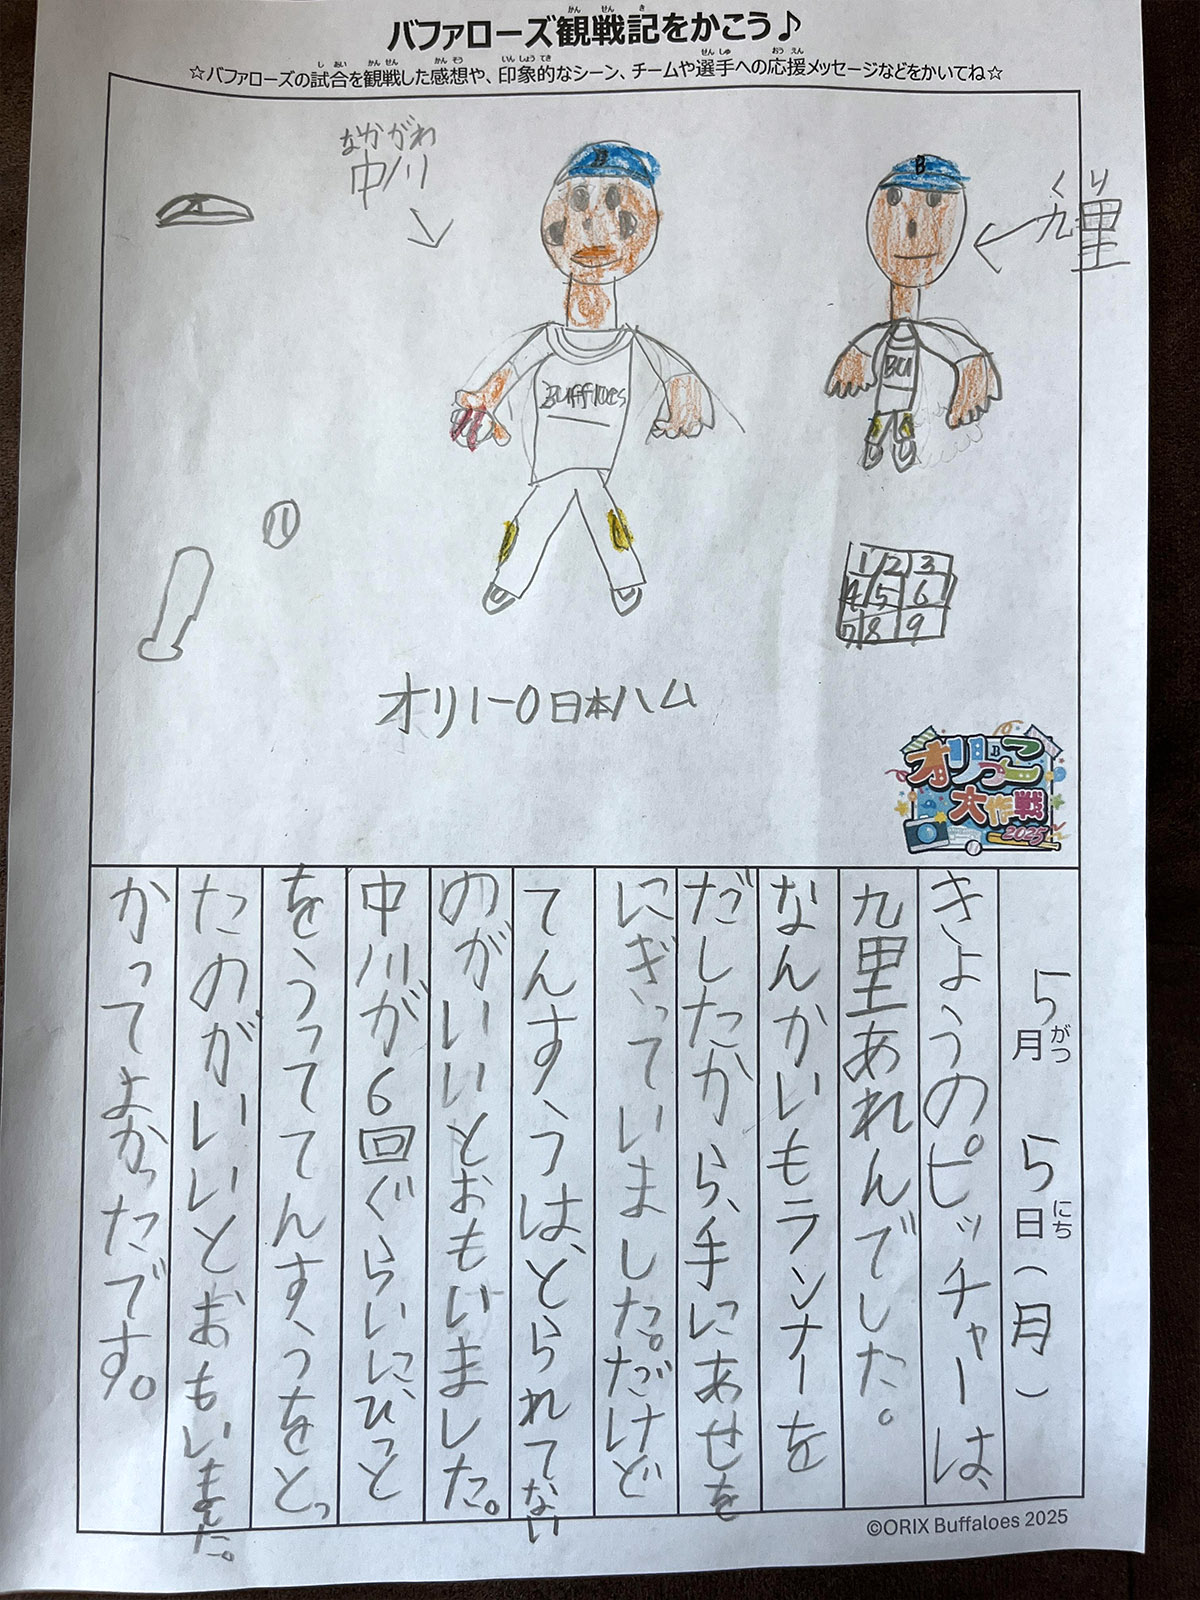 バファローズ観戦記をかこう♪
☆バファローズの試合を観戦した感想や、印象的なシーン、チームや選手への応援メッセージなどをかいてね☆
なかがわ
中川
くり
九里
B
B
Buffloes
BU
1 2 3
4 5 6
7 8 9
オリ1-0日本ハム
オリっこ大作戦
2025
5月5日(月)
きょうのピッチャーは、
九里あれんでした。
なんかいもランナーを
だしたから、手にあせを
にぎっていました。だけど
てんすうは、とられてない
のがいいとおもいました。
中川が6回ぐらいに、ひっと
をうっててんすうをとっ
たのがいいとおもいました。
かってよかったです。
©ORIX Buffaloes 2025